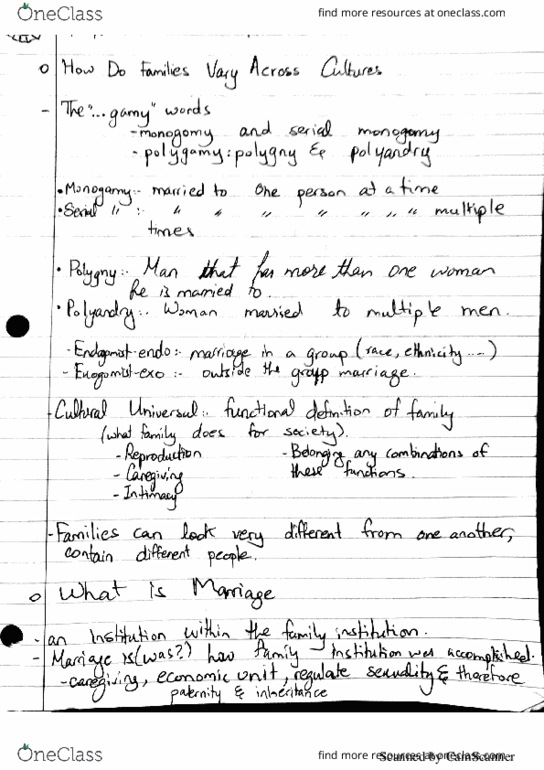 OneClass
find more resources at oneclass.com
o How Do Families Vary Across Cultures
- The "...gamy" words
- monogomy and serial monogomy
- polygamy: polygny & polyandry
• Monogamy:- married to one person at a time
• Serial " :- " " " " " " " multiple
times
• Polygny:- Man that has more than one woman
he is married to.
• Polyandry:. Woman married to multiple men.
- Endogomist-endo:- marriage in a group (race, ethnicity ...)
- Exogomist-exo :- outside the group marriage.
- Cultural Universal:. functional definition of family
(what family does for society).
- Reproduction
- Caregiving
- Intimacy
- Belonging any combinations of
these functions.
- Families can look very different from one another,
contain different people.
o What is Marriage
- an Institution within the family institution.
- Marriage is (was?) how family institution was accomplished.
- caregiving, economic unit, regulate sexuality & therefore
paternity & inheritance
OneClass
find more resources at oneclass.com
Scanned by CamScanner